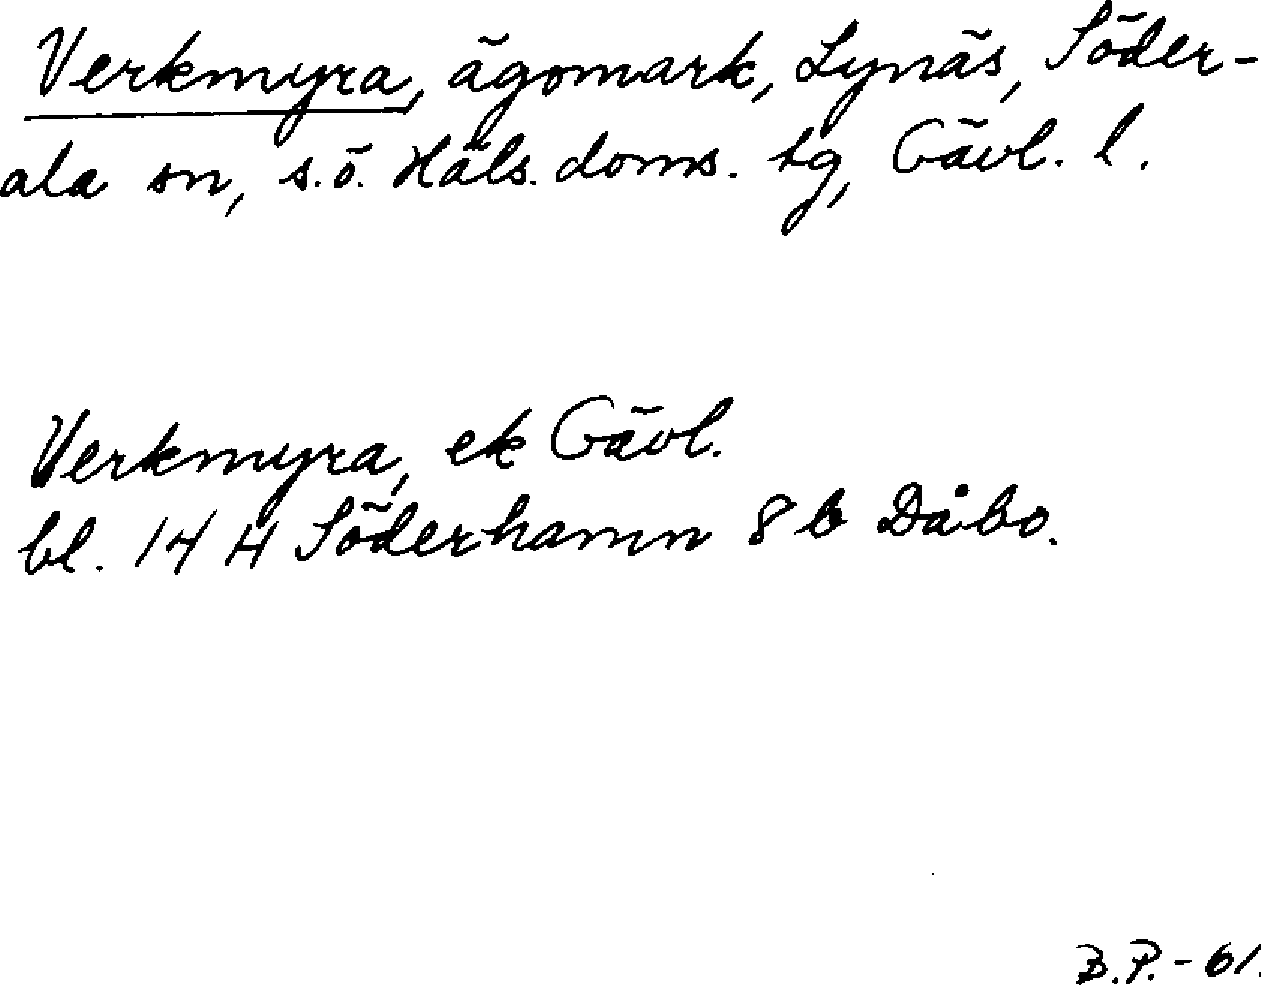 Verkmyra, ägomark, Lynäs, Söder-
ala sn, s.ö. Häls. doms. tg, Gävl. l.
Verkmyra, ek Gävl.
bl. 14 H Söderhamn 8 b Dåbo.
B.P.-61.